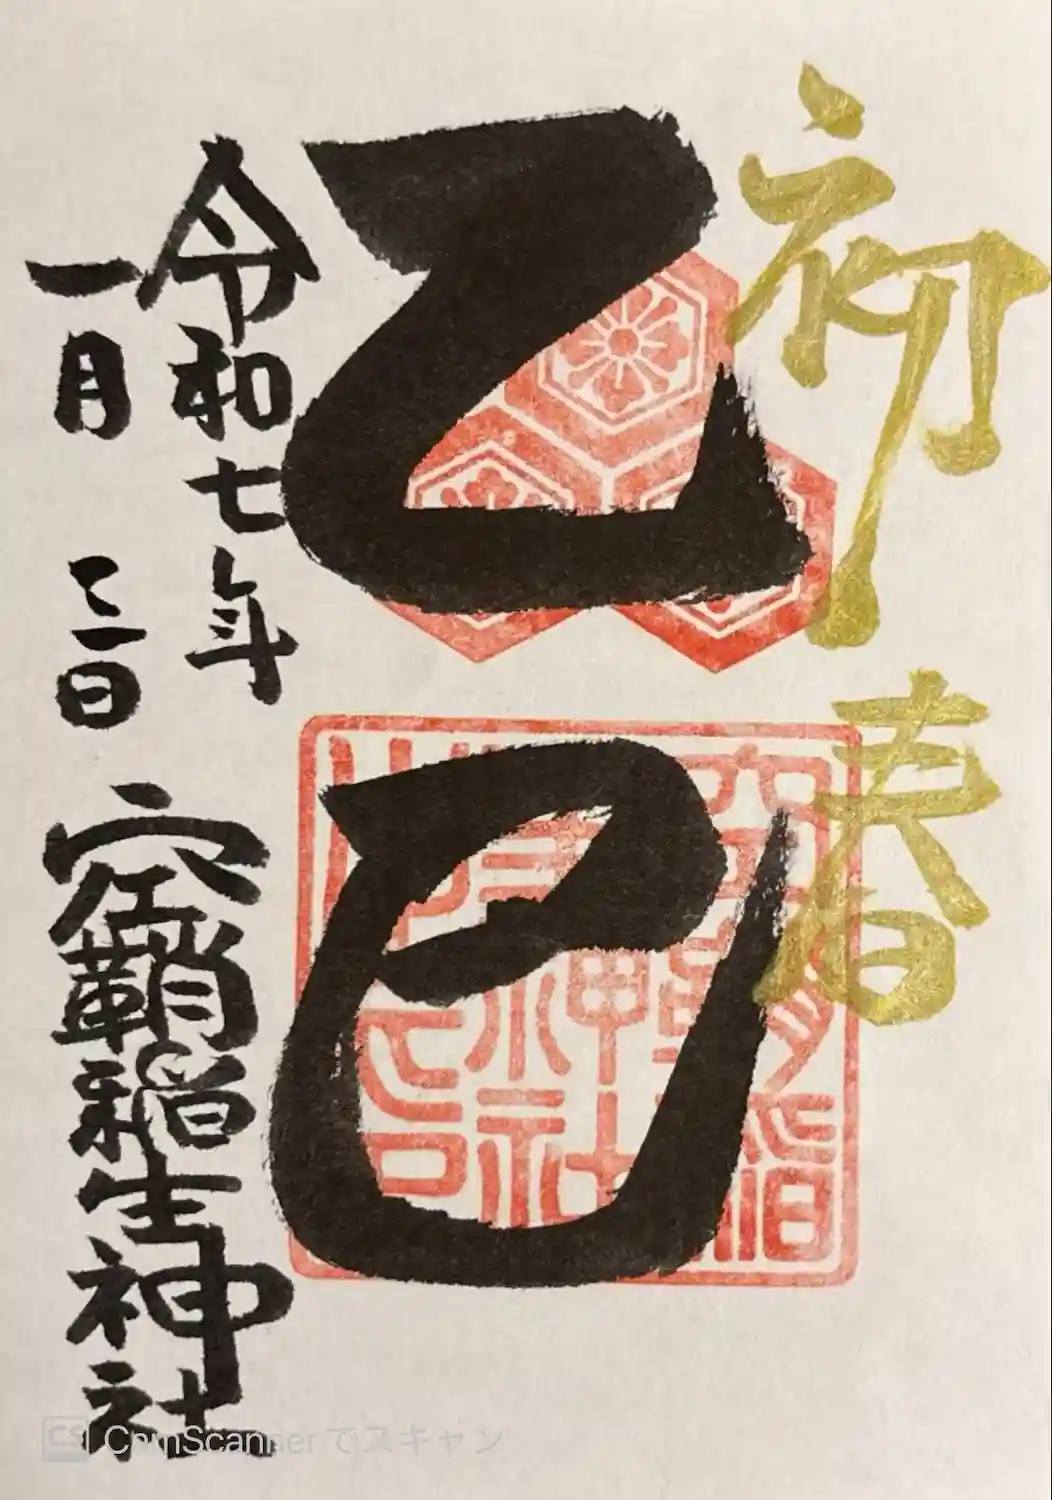 初春
乙巳
令和七年
一月三日
空鞘稲生神社
CS CamScanner でスキャン